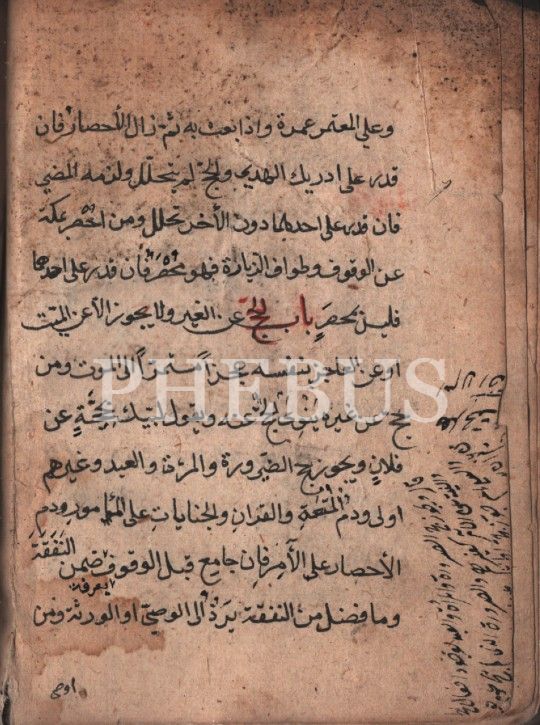 وعلى المعتمر عمرة واذا بعث به ثم زال الاحصار فان
قدر على ادراك الهدي والحج لم يتحلل ولزمه المضي
فان قدر على احدهما دون الآخر تحلل ومن احصر بمكة
عن الوقوف وطواف الزيارة فهو محصر فان قدر على احدهما
فليس بمحصر باب الحج عن الغير ولا يجوز الا عن الميت
او عن العاجز بنفسه عجزا مستمرا الى الموت ومن
حج عن غيره ينوي الحج عنه ويقول لبيك بحجة عن
فلان ويجوز حج الصرورة والمرأة والعبد وغيرهم
اولى ودم المتعة والقران والجنايات على المأمور ودم
الاحصار على الآمر فان جامع قبل الوقوف ضمن النفقة
بعرفة
وما فضل من النفقة يرد الى الوصي او الورثة ومن
اوصى
PHEBUS